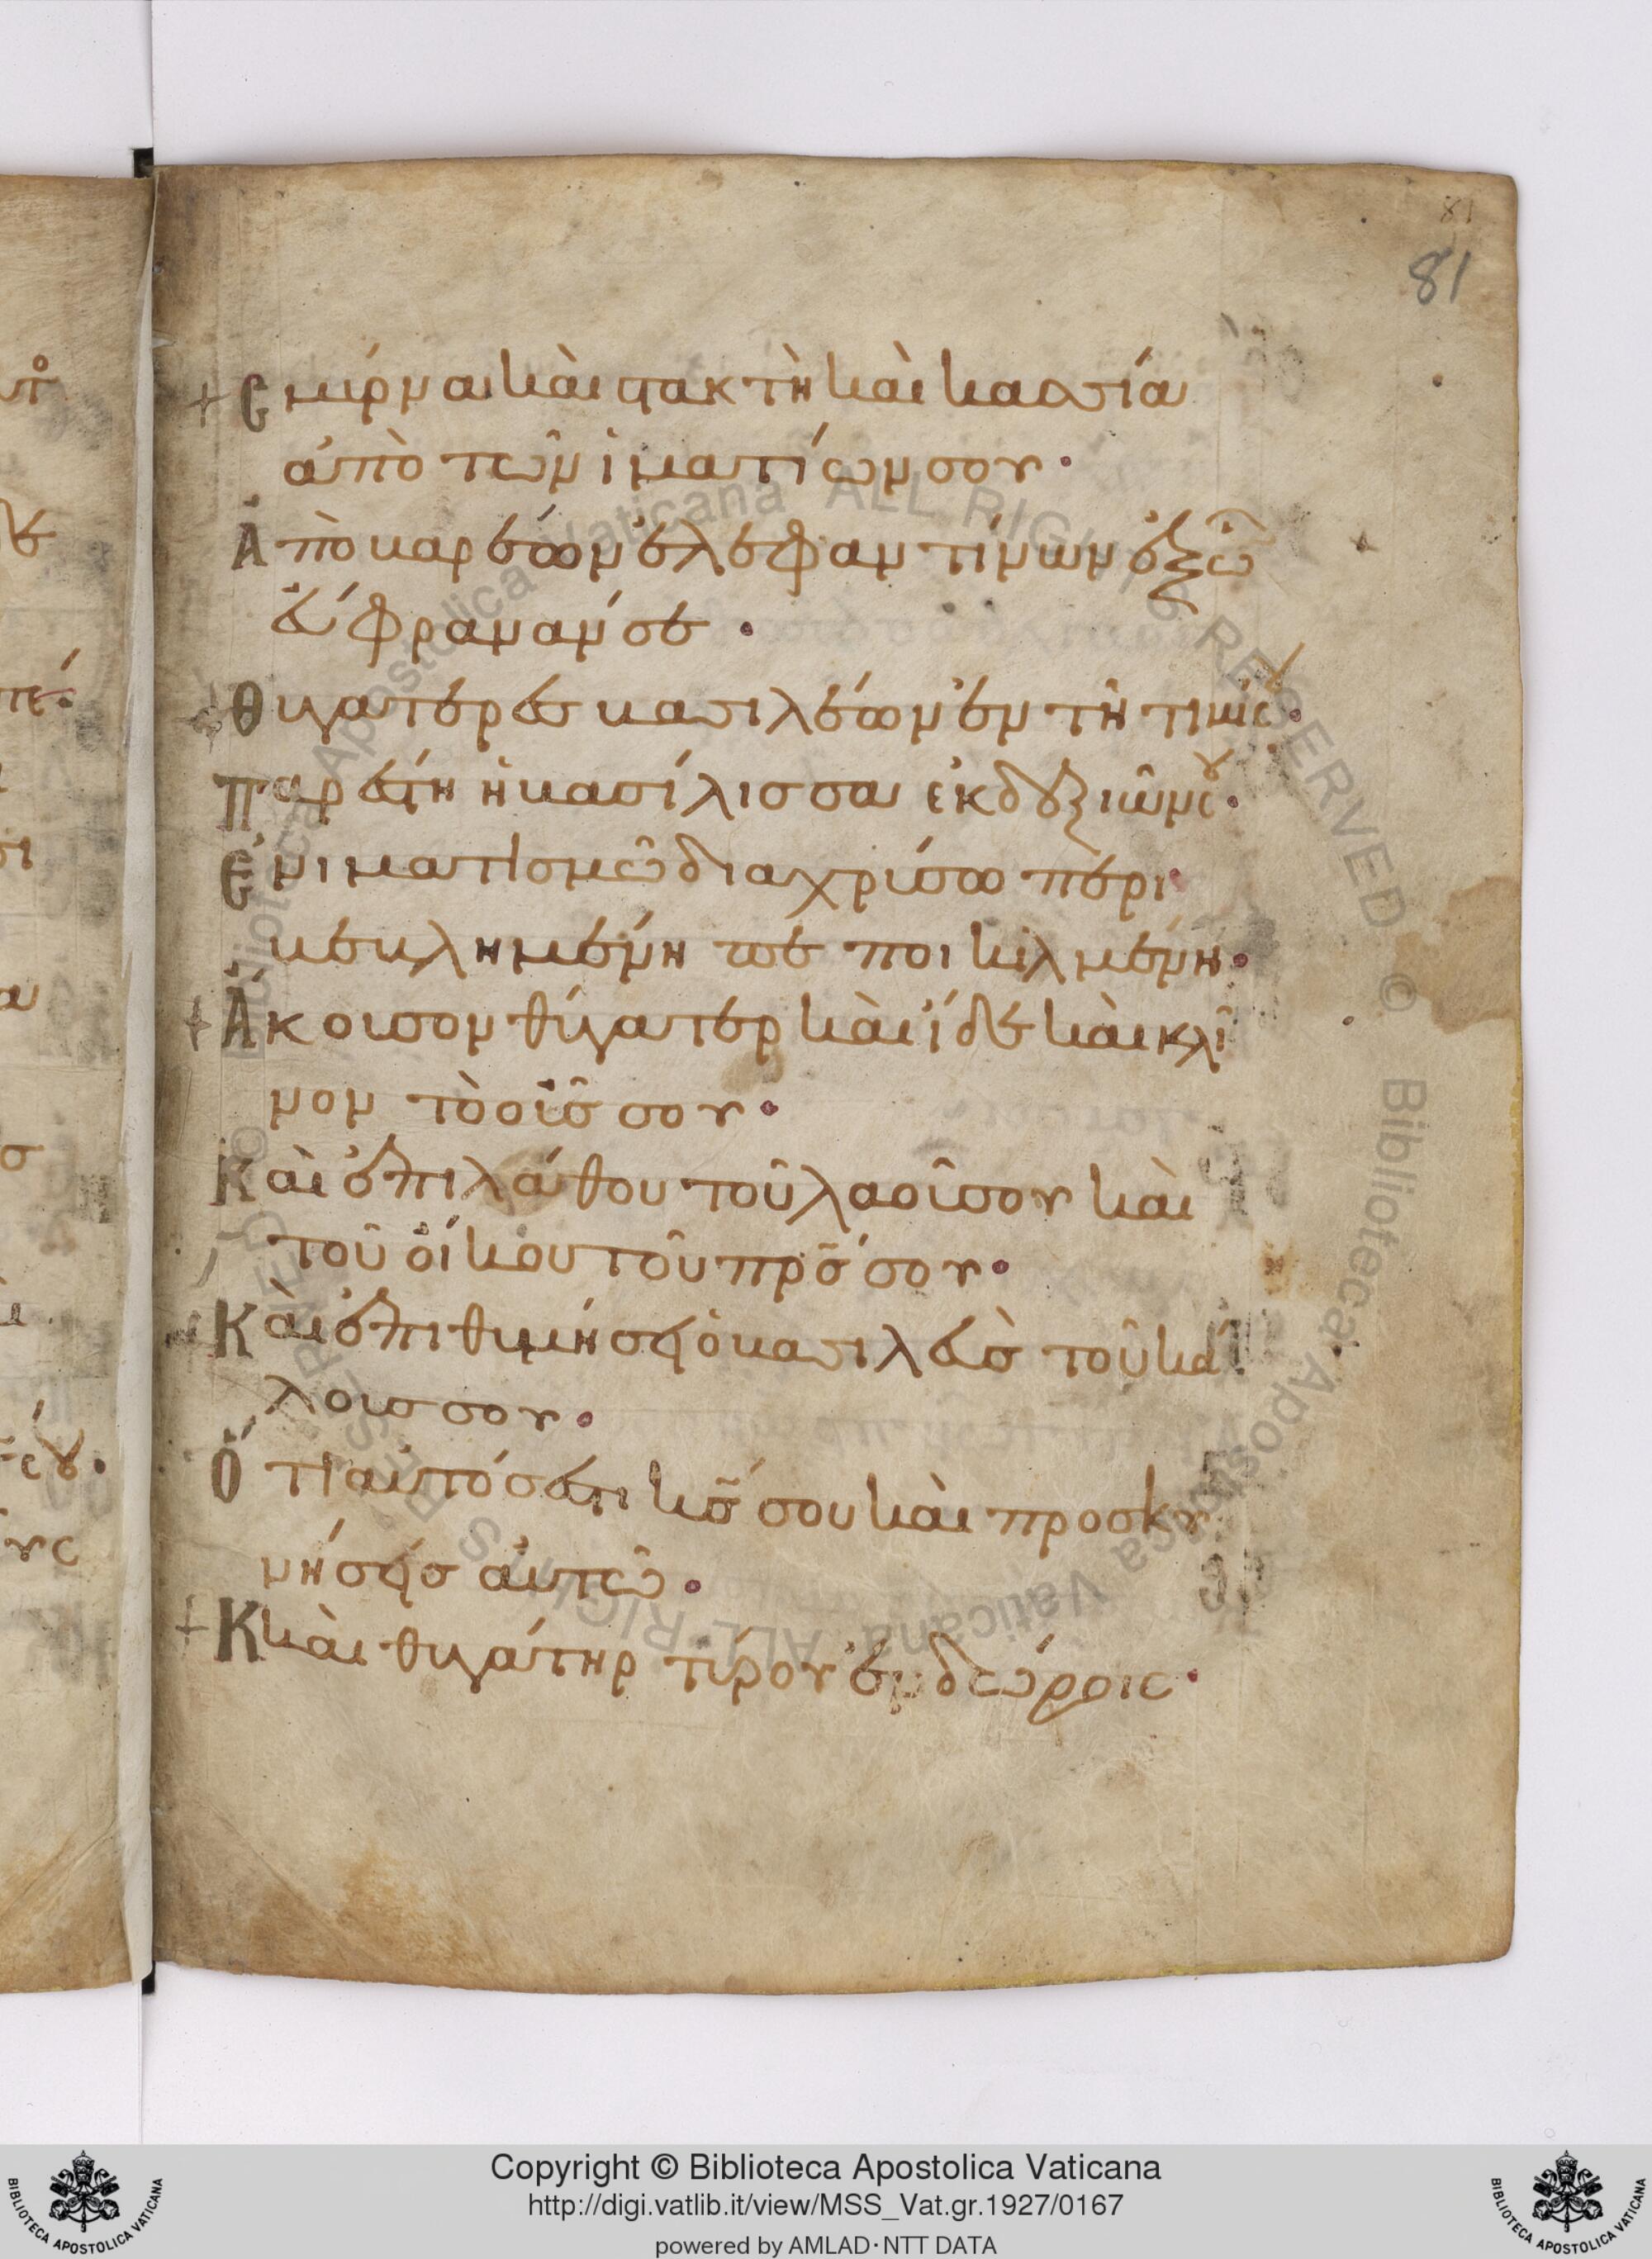 81
81
+ Σμύρνα καὶ στακτὴ καὶ κασσία
ἀπὸ τῶν ἱματίων σου·
Ἀπὸ βαρέων ἐλεφαντίνων ἐξ ὧ
εὔφραναν σε·
Θυγατέρες βασιλέων ἐν τῇ τιμῇ σου·
Παρέστη ἡ βασίλισσα ἐκ δεξιῶν σου·
Ἐν ἱματισμῶ διαχρύσω περι
βεβλημένη πεποικιλμένη·
+ Ἄκουσον θύγατερ καὶ ἴδε καὶ κλῖ
νον τὸ οὖς σου·
Καὶ ἐπιλάθου τοῦ λαοῦ σου καὶ
τοῦ οἴκου τοῦ πρ̅σ σου·
Καὶ ἐπιθυμήσει ὁ βασιλεὺς τοῦ κάλ
λους σου·
Ὅτι αὐτός ἐστι κ̅σ σου καὶ προσκυ
νήσεις αὐτῶ·
+ Κ καὶ θυγάτηρ τύρου ἐν δώροις·
Copyright © Biblioteca Apostolica Vaticana
http://digi.vatlib.it/view/MSS_Vat.gr.1927/0167
powered by AMLAD·NTT DATA
BIBLIOTECA APOSTOLICA VATICANA
BIBLIOTECA APOSTOLICA VATICANA